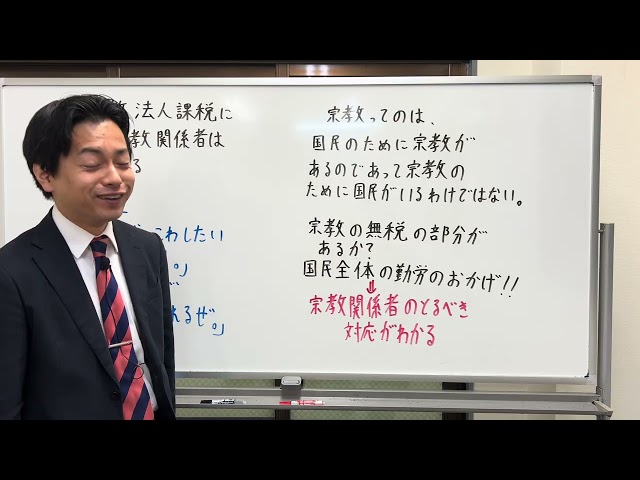 法人課税に
教関係者は
る
こわしたい
。」
れるぜ。」
宗教ってのは、
国民のために宗教が
あるのであって宗教の
ために国民がいるわけではない。
宗教の無税の部分が
あるか?
国民全体の勤労のおかげ!!
⇓
宗教関係者のとるべき
対応がわかる